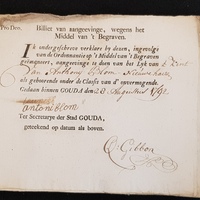 Pro Deo. Billiet van aangeevinge, wegens het
Middel van 't Begraven.
IK ondergeschreven verklare by deezen, ingevolge
van de Ordonnantie op 't Middel van 't Begraven
geëmaneert, aangeevinge te doen van het Lyk van
van Anthony Blom Nieuwe haven
als gehoorende onder de Classis van d' onvermogende.
Gedaan binnen GOUDA den 23 Augustus 1792
antoni blom
Ter Secretarye der Stad GOUDA,
geteekend op datum als boven.